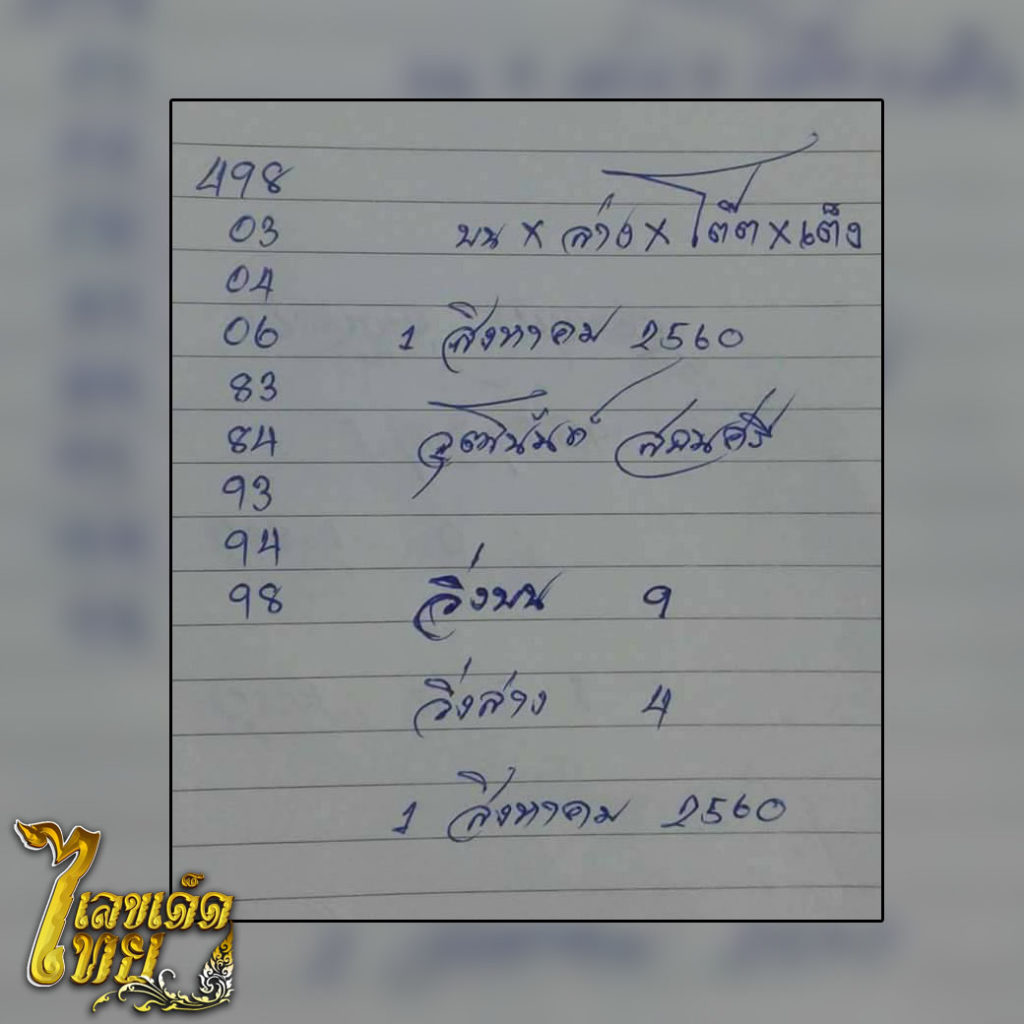 498
03 บน × ล่าง × โต๊ด × เต็ง
04
06 1 สิงหาคม 2560
83
84 วุฒินันท์
93
94
98 วิ่งบน 9
วิ่งล่าง 4
1 สิงหาคม 2560
เลขเด็ด
ไทย